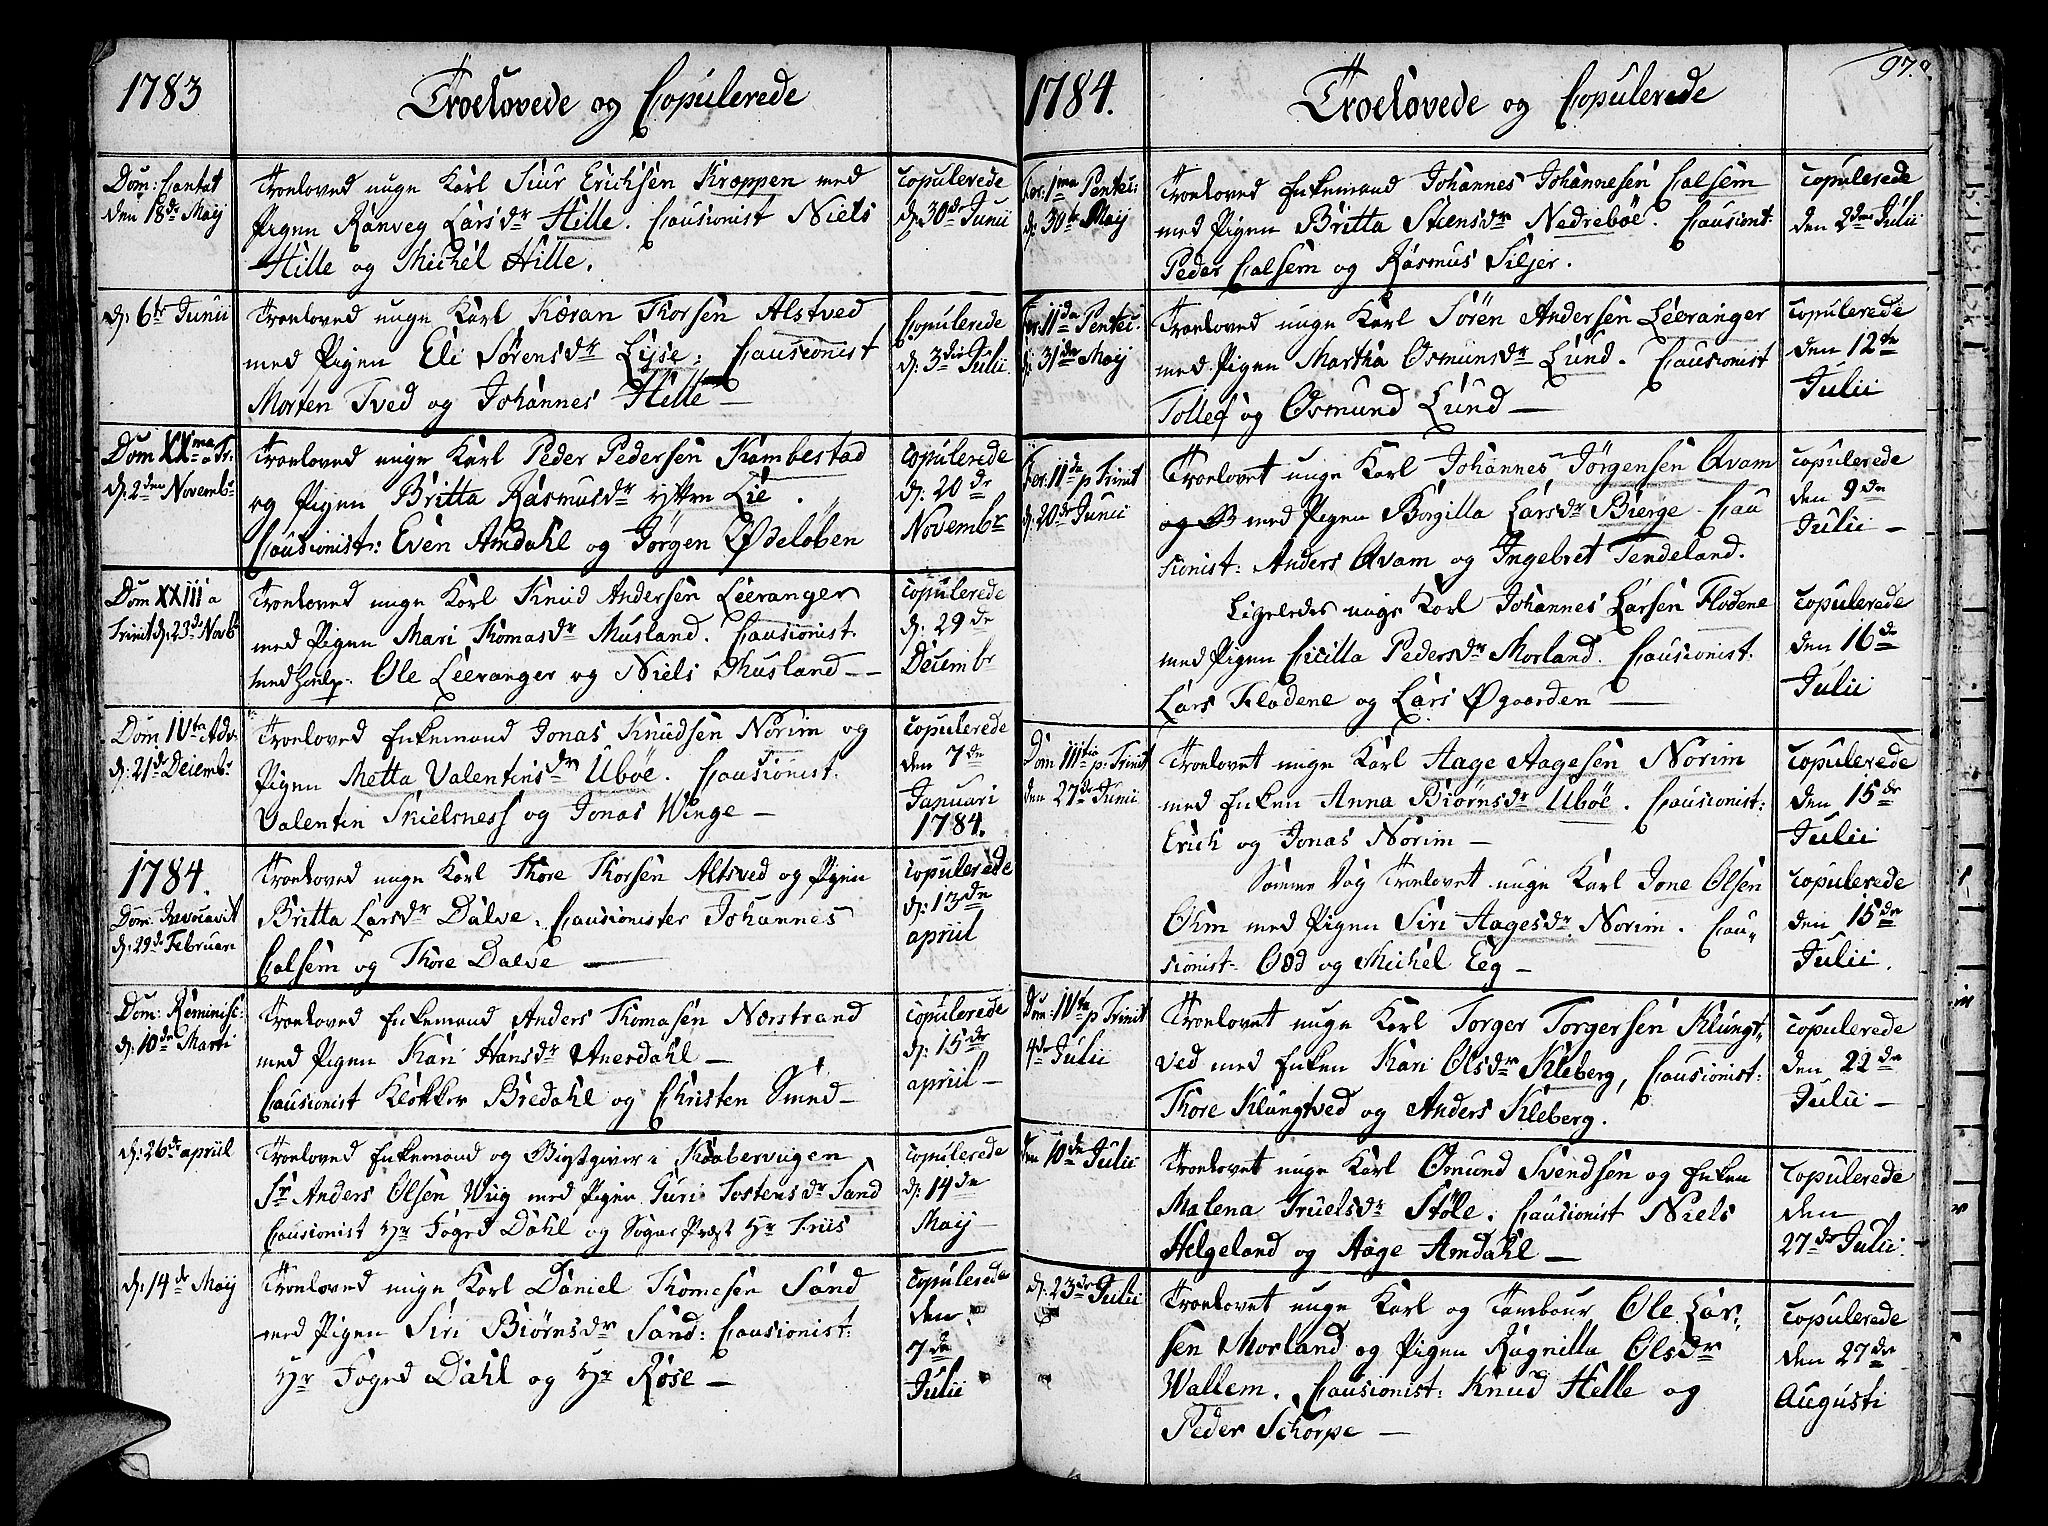 1783
Troelovede og Copulerede
Dom: Cantat
den 18de Maij
Troeloved unge Karl Siur Erichsen Kroppen med
Pigen Ranveg Larsdr Hille. Causionist Niels
Hille og Michel Hille.
Copulerede
d: 30de Junii
d: 6te Junii
Troeloved unge Karl Kæran Thorsen Alstved
med Pigen Eli Sørensdr Lyse: Causionist
Morten Tved og Johannes Hille —
Copulerede
d: 3die Julii
Dom XXma a Tr.
d: 2den Novembr
Troeloved unge Karl Peder Pedersen Kambestad
og Pigen Britta Rasmusdr Yttre Lie.
Causionist: Even Amdahl og Jørgen Ødeloben
Copulerede
d: 20de
Novembr
Dom XXIII a
Trinit d. 23de Novbr
Troeloved unge Karl Knud Andersen Leeranger
med Pigen Mari Thomasdr Musland. Causionist.
Ole Leeranger og Niels Musland —
Copulerede
d: 29de
Decembr
Dom IVte Adv.
d: 21de Decembr
Troeloved Enkemand Jonas Knudsen Norim og
Pigen Metta Valentinsdr Uboe. Causionist.
Valentin Skielsness og Jonas Winge —
Copulerede
den 7de
Januari
1784.
1784.
Dom: Invocavit
d. 29de Februari
Troeloved unge Karl Thore Thorsen Altsved og Pigen
Britta Larsdr Dalve. Causionister Johannes
Calsem og Thore Dalve —
Copulerede
d: 13de
april
Dom: Reminisc:
d: 10de Marti
Troeloved Enkemand Anders Thomasen Nærstrand
med Pigen Kari Hansdr Anerdahl —
Causionist Klokker Bredahl og Christen Smed —
Copulerede
d: 15de
april —
d: 26de april
Troeloved Enkemand og Giestgiver i Kaabervigen
Sr Anders Olsen Wiig med Pigen Guri Tostensdr Sand
Causionist Hr Foged Dahl og Sogne Præst Hr Friis
Copulerede
d: 14de
Maij
d: 14de Maij
Troeloved unge Karl Daniel Thomesen Sand
med Pigen Siri Biørnsdr Sand: Causionist:
Hr Foged Dahl og Hr Rose —
Copulerede
den
7de
Julii
97.
1784.
Troelovede og Copulerede
Fer: 1ma Pentec:
d: 30te Maij
Troeloved Enkemand Johannes Johannesen Calsem
med Pigen Britta Stensdr Nedreböe. Causionist:
Peder Calsem og Rasmus Siljer.
Copulerede
den 2den Julii
Fer: 11da Pentec.
d: 31de Maij
Troeloved unge Karl Sören Andersen Leeranger
med Pigen Martha Osmunsdr Lund. Causionist
Tollef og Osmund Lund —
Copulerede
den 12te
Julii
Fer: 11da p Trinit
d: 20de Junii
Troelovet unge Karl Johannes Jörgensen Qvam
og med Pigen Borgilla Larsdr Bierge. Cau
sionist: Anders Qvam og Ingebret Tendeland.
Copulerede
den 9de
Julii —
Ligeledes unge Karl Johannes Larsen Flodene
med Pigen Cicilla Pedersdr Morland. Causionist.
Lars Flodene og Lars Øgaarden —
Copulerede
den 16de
Julii
Dom IIItia p. Trinit
den 27de Junii
Troelovet unge Karl Aage Aagesen Norim
med Enken Anna Biørnsdr Uböe. Causionist:
Erich og Jonas Norim —
Copulerede
den 15de
Julii
Samme Dag Troelovet unge Karl Jone Olsen
Ohm med Pigen Siri Aagesdr Norim. Cau„
sionist. Odd og Michel Eeg —
Copulerede
den 15de
Julii.
Dom: IVta p Trinit
4de Julii
Troelovet unge Karl Torger Torgersen Klungt„
ved med Enken Kari Olsdr Kleberg, Causionist:
Thore Klungtved og Anders Kleberg.
Copulerede
den 22de
Julii —
den 10de Julii
Troelovet unge Karl Osmund Svendsen og Enken
Malena Truelsdr Stöle. Causionist Niels
Helgeland og Aage Amdahl —
Copulerede
den
27de Julii.
d: 23de Julii
Troelovet unge Karl og Tambour Ole Lar„
sen Morland og Pigen Ragnilla Olsdr
Wallem. Causionist: Knud Helle og
Peder Schorpe —
Copulerede
den 27de
Augusti